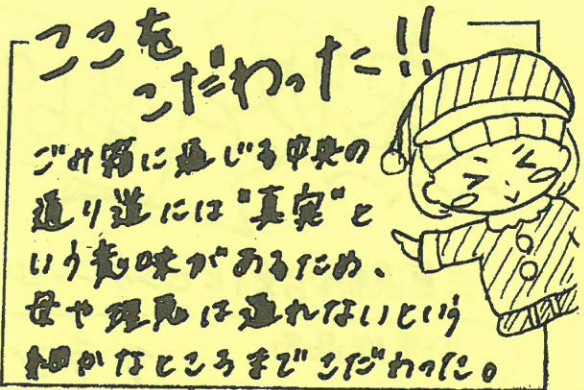 ここを
こだわった!!
ごみ箱に通じる中央の
通り道には"真実"と
いう意味があるため、
母や理鳳は通れないという
細かなところまでこだわった。